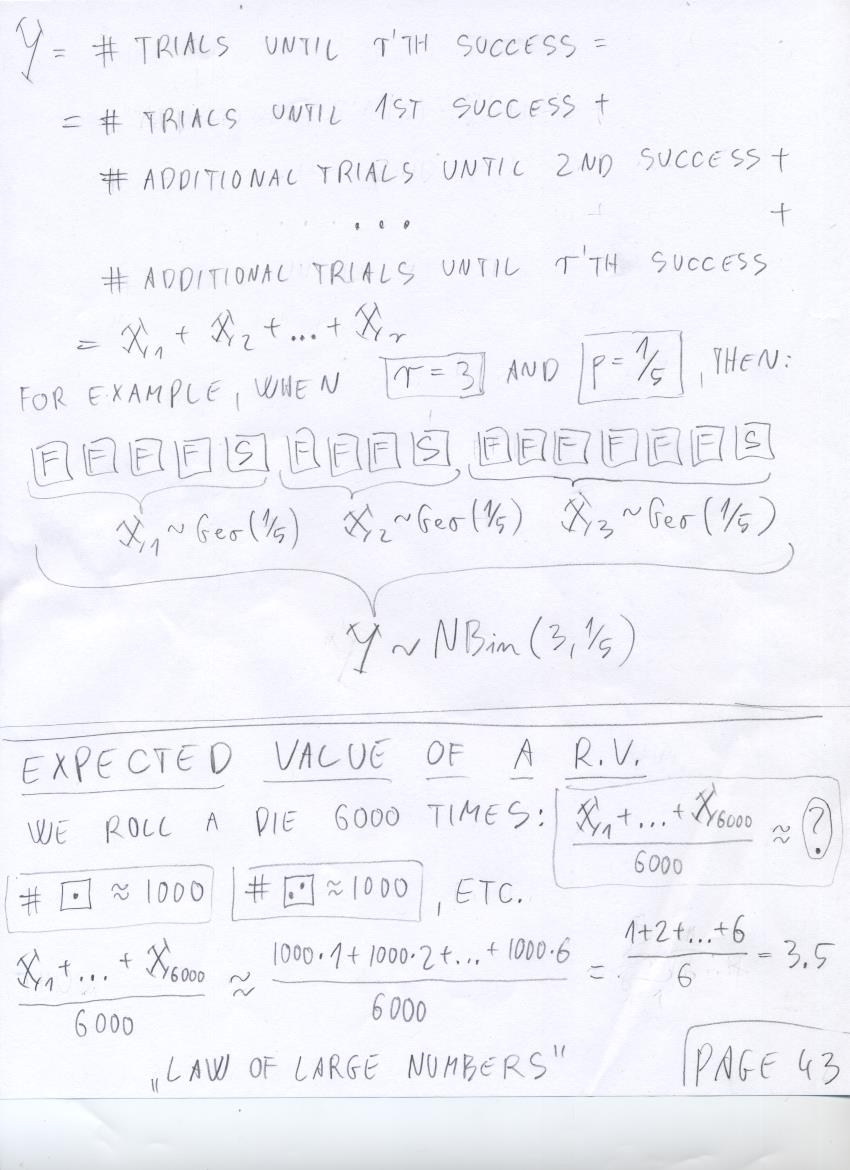 Y = # TRIALS UNTIL r'TH SUCCESS =
= # TRIALS UNTIL 1ST SUCCESS +
# ADDITIONAL TRIALS UNTIL 2ND SUCCESS +
... +
# ADDITIONAL TRIALS UNTIL r'TH SUCCESS
= X₁ + X₂ + ... + Xᵣ
FOR EXAMPLE, WHEN r = 3 AND p = 1/5, THEN:
F F F F S F F F S F F F F F F S
X₁ ~ Geo(1/5) X₂ ~ Geo(1/5) X₃ ~ Geo(1/5)
Y ~ NBin(3, 1/5)
EXPECTED VALUE OF A R.V.
WE ROLL A DIE 6000 TIMES: (X₁ + ... + X₆₀₀₀)/6000 ≈ ?
# ⚀ ≈ 1000 # ⚁ ≈ 1000, ETC.
(X₁ + ... + X₆₀₀₀)/6000 ≈ (1000·1 + 1000·2 + ... + 1000·6)/6000 = (1+2+...+6)/6 = 3.5
„LAW OF LARGE NUMBERS"
PAGE 43